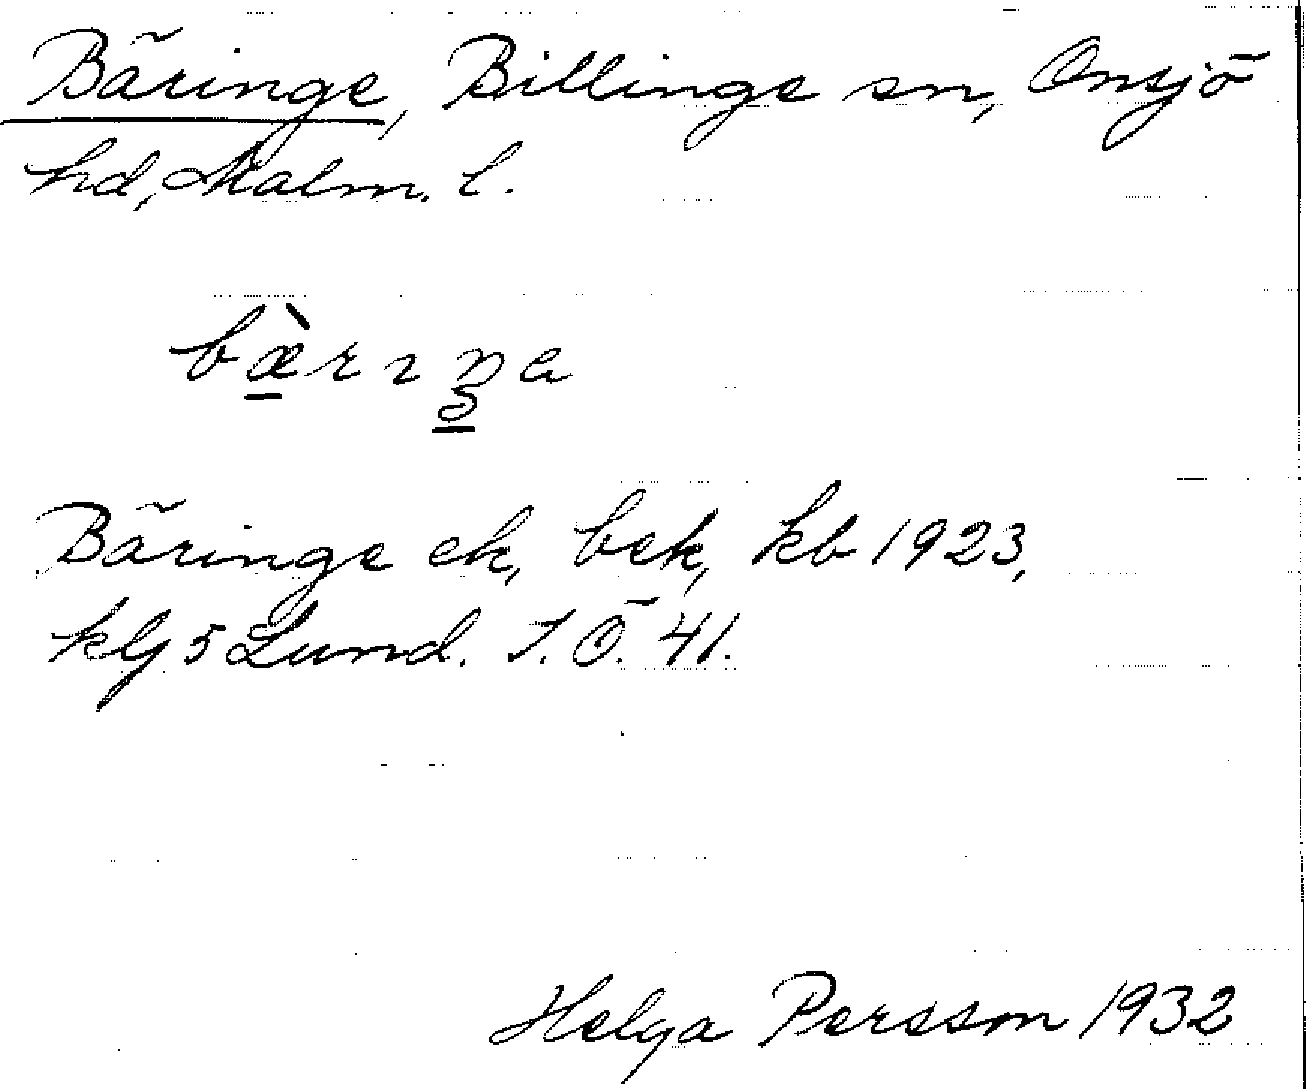 Bäringe, Billinge sn, Onsjö
hd, Malm. l.
bæ̀rıŋa
Bäringe ek, bek, kb 1923,
klj 5 Lund. J. Ö. 41.
Helga Persson 1932